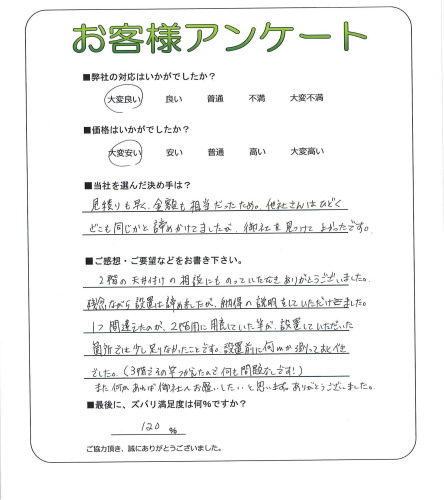 お客様アンケート
■弊社の対応はいかがでしたか？
大変良い 良い 普通 不満 大変不満
■価格はいかがでしたか？
大変安い 安い 普通 高い 大変高い
■当社を選んだ決め手は？
見積りも早く、金額も相当だったため。他社さんはひどく
どこも同じかと諦めかけてましたが、御社を見つけてよかったです。
■ご感想・ご要望などをお書き下さい。
2階の天井付けの相談にものっていただきありがとうございました。
残念ながら設置は諦めましたが、納得の説明をしていただけました。
1つ間違えたのが、2階用に用意していた竿が、設置していただいた
箇所では少し足りなかったことです。設置前に何mか測っておくべき
でした。(3階その竿つかえたので何も問題なしです!)
また何かあれば御社へお願いしたいと思います。ありがとうございました。
■最後に、ズバリ満足度は何%ですか？
120 %
ご協力頂き、誠にありがとうございました。